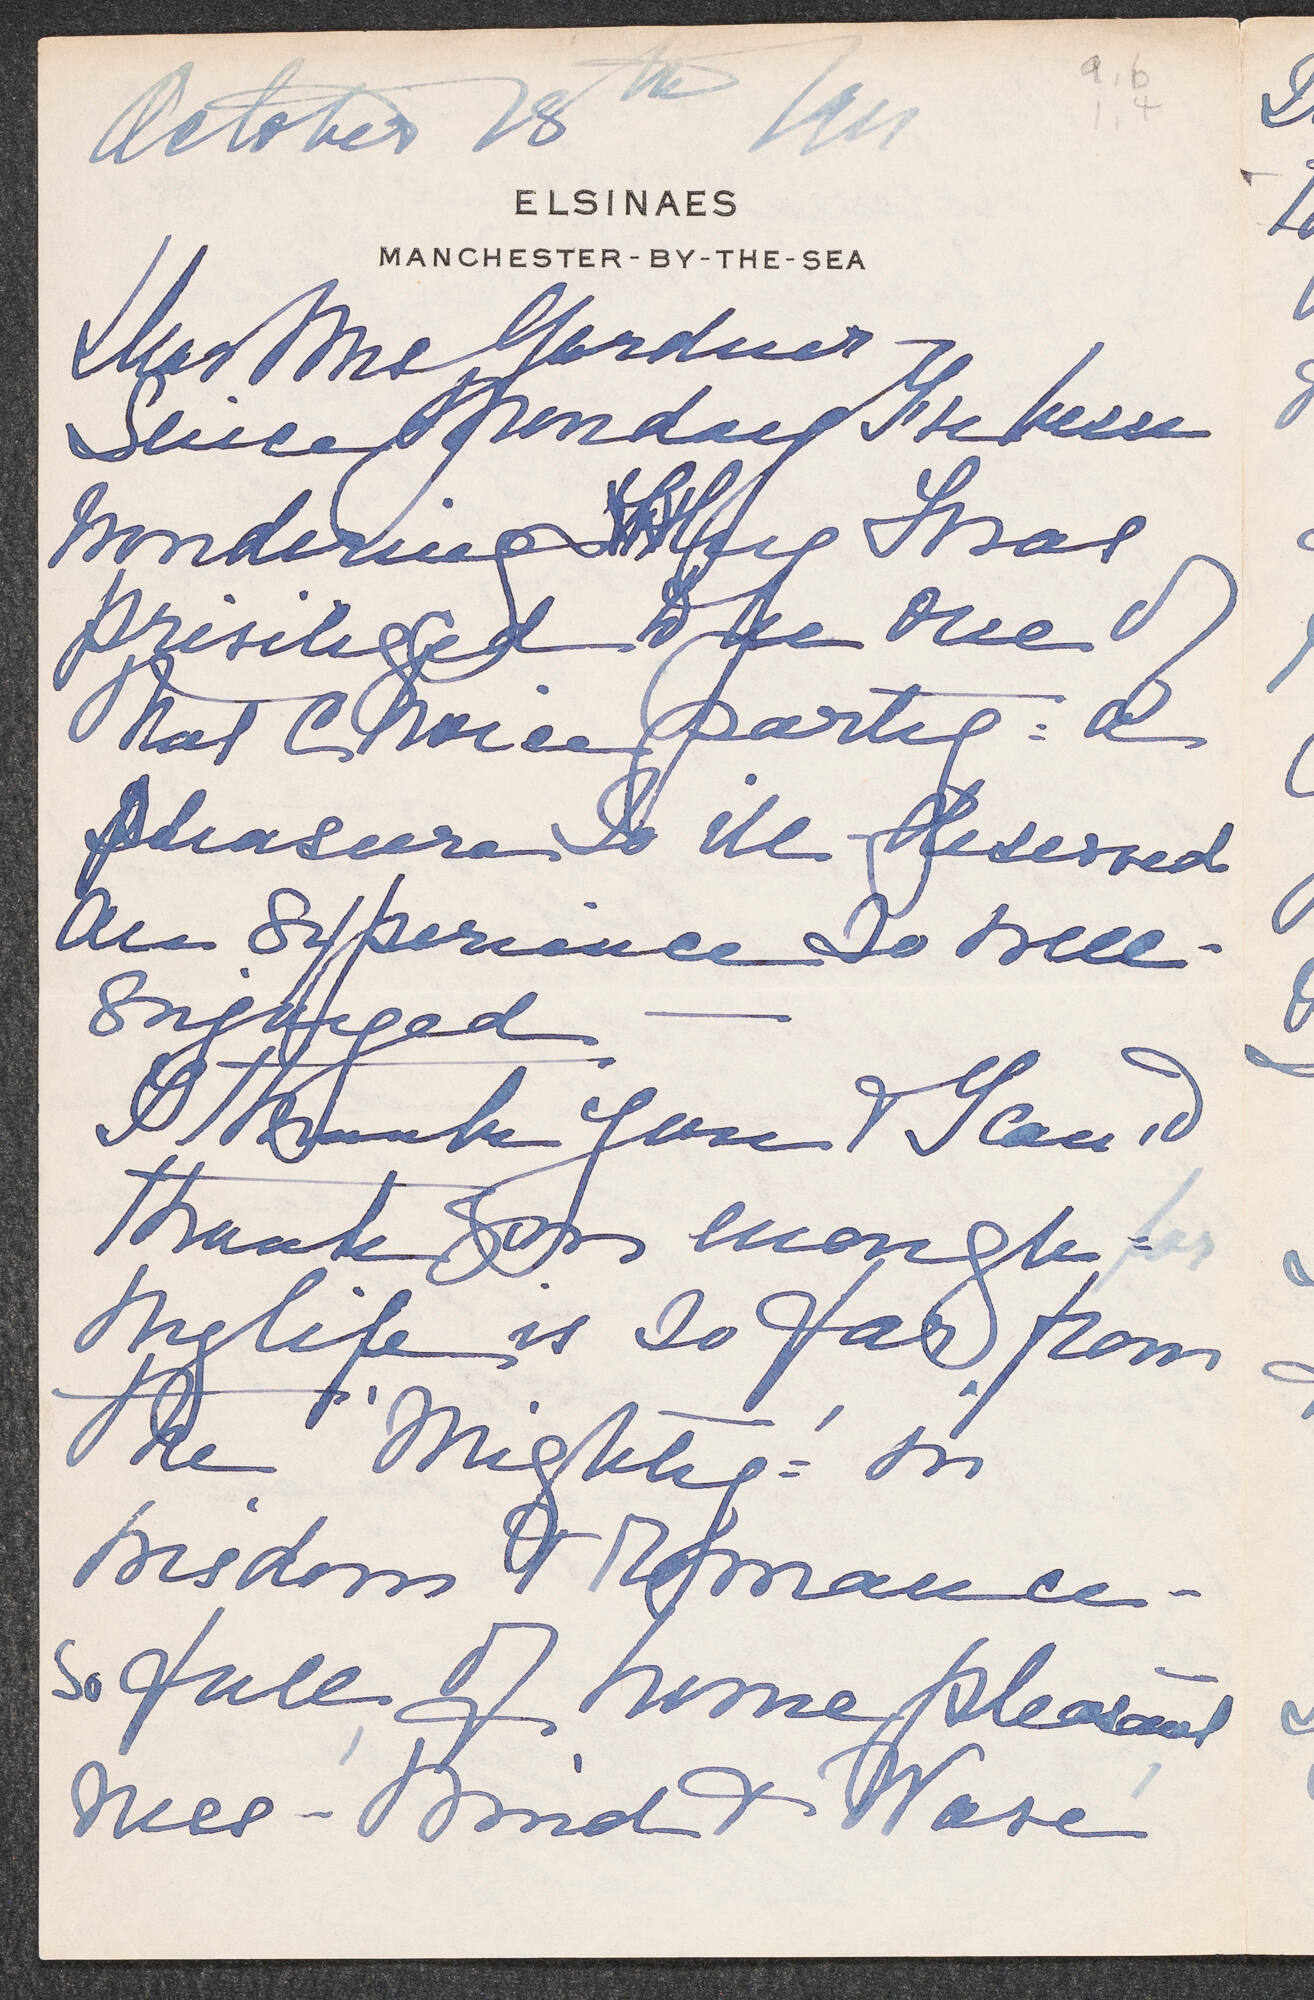 October 28th 1911
9.6
1.4
ELSINAES
MANCHESTER-BY-THE-SEA
Dear Mrs Gardner -
Since Monday I've been
wondering Why I was
privileged to be one of
that Choice party = a
pleasure so ill-deserved
an Experience so well-
Enjoyed —
I thank you & I can'd
thank you enough = for
My life is so far from
the 'Mighty' = in
wisdom & Romance -
so full, of home pleasant
ness - 'Wind & Wave'